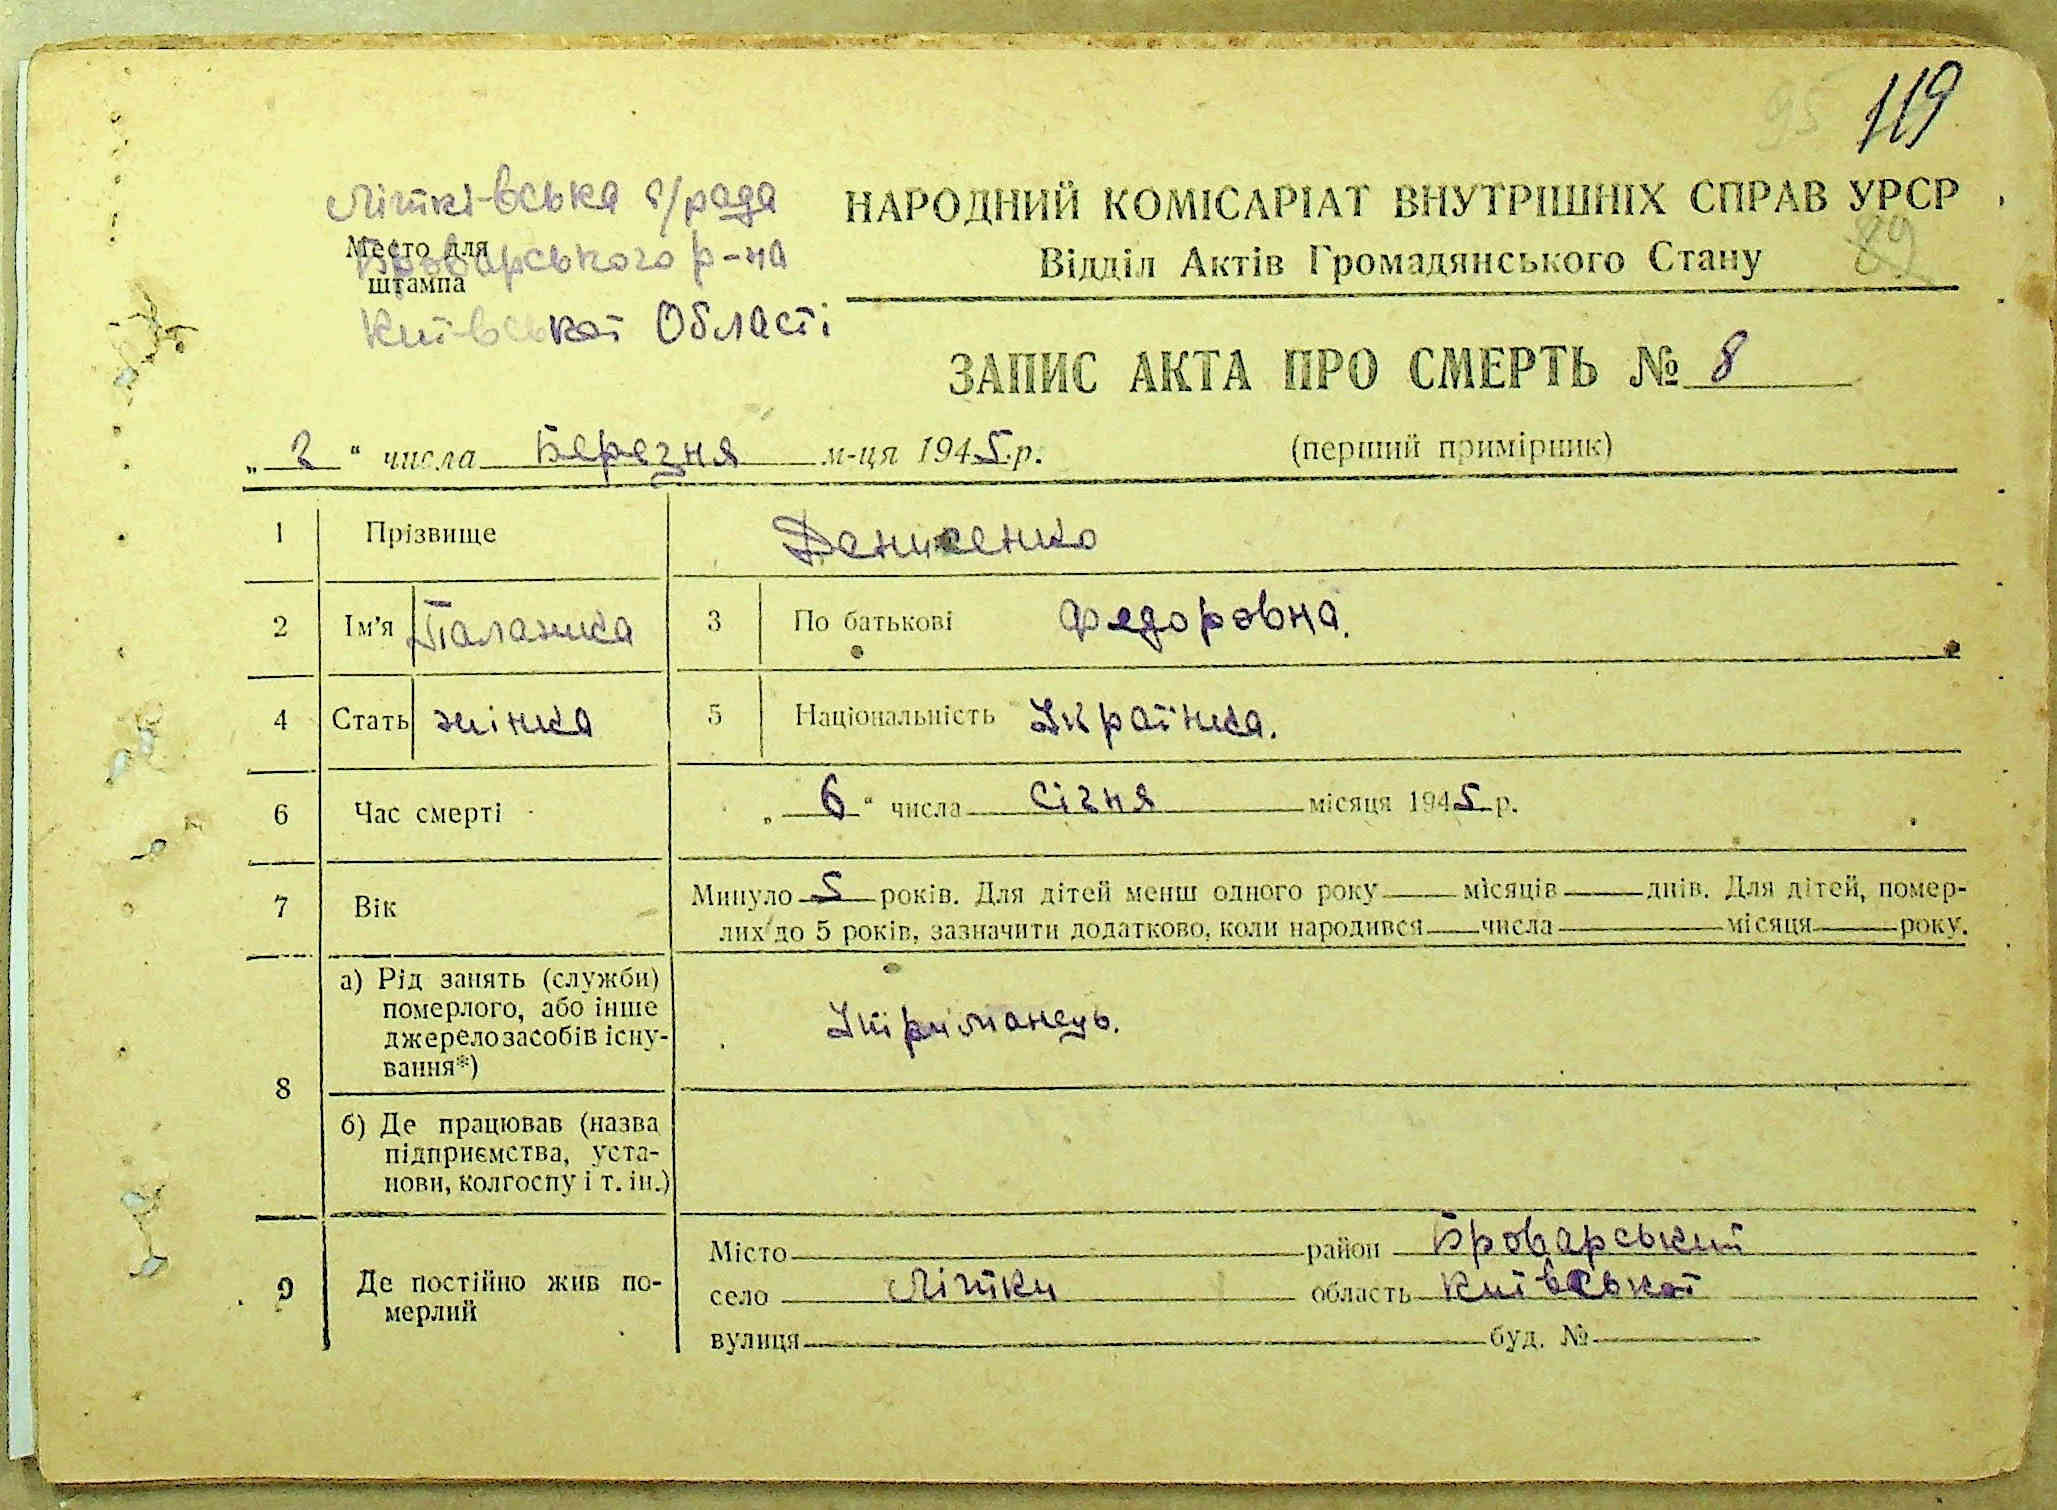 95 119
Літківська с/рада
Место для
штампа
Броварського р-на
Київської Області
НАРОДНИЙ КОМІСАРІАТ ВНУТРІШНІХ СПРАВ УРСР
Відділ Актів Громадянського Стану
89
ЗАПИС АКТА ПРО СМЕРТЬ № 8
„ 2 “ числа Березня м-ця 1945 р.
(перший примірник)
1 Прізвище Денисенко
2 Ім'я Палажка 3 По батькові Федоровна.
4 Стать жінка 5 Національність Українка.
6 Час смерті „ 6 “ числа Січня місяця 1945 р.
7 Вік Минуло 5 років. Для дітей менш одного року місяців днів. Для дітей, помер-
лих до 5 років, зазначити додатково, коли народився числа місяця року.
8 а) Рід занять (служби)
померлого, або інше
джерело засобів існу-
вання*)
Утриманець.
б) Де працював (назва
підприємства, уста-
нови, колгоспу і т. ін.)
9 Де постійно жив по-
мерлий
Місто район Броварський
село Літки область Київської
вулиця буд. №